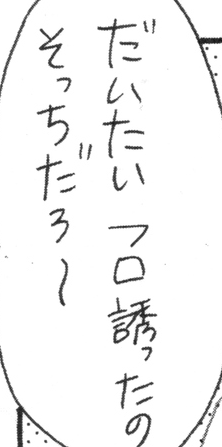 だいたいフロ誘ったの
そっちだろ〜